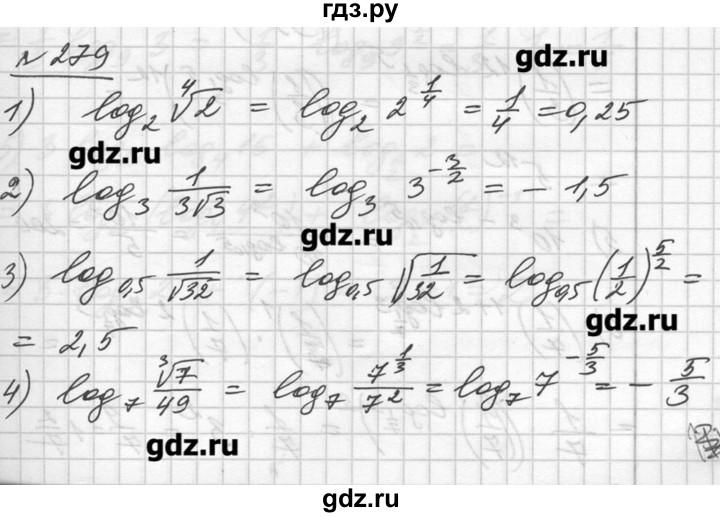 гдз.ру
№ 279
gdz.ru
1) log₂ ⁴√2 = log₂ 2^(1/4) = 1/4 = 0,25
gdz.ru
2) log₃ 1/(3√3) = log₃ 3^(-3/2) = - 1,5
gdz.ru
3) log₀,₅ 1/√32 = log₀,₅ √(1/32) = log₀,₅ (1/2)^(5/2) =
gdz.ru
= 2,5
4) log₇ ³√7/49 = log₇ 7^(1/3)/7² = log₇ 7^(-5/3) = - 5/3
gdz.ru
gdz.ru